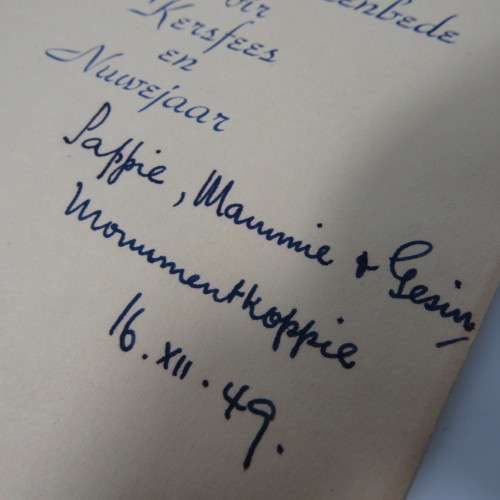 Kersfees
en
Nuwejaar
Pappie, Mammie & Gesin,
Monumentkoppie
16.XII.49.